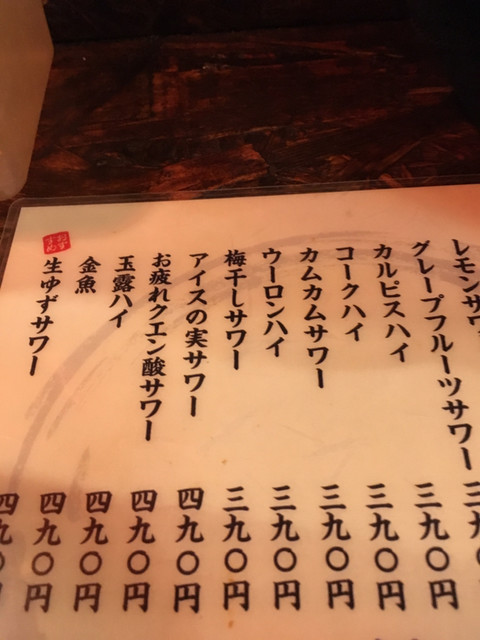 レモンサワ
グレープフルーツサワー 三九〇
カルピスハイ 三九〇円
コークハイ 三九〇円
カムカムサワー 三九〇円
ウーロンハイ 三九〇円
梅干しサワー 三九〇円
アイスの実サワー 四九〇円
お疲れクエン酸サワー 四九〇円
玉露ハイ 四九〇円
金魚 四九〇円
おすすめ
生ゆずサワー 四九〇円